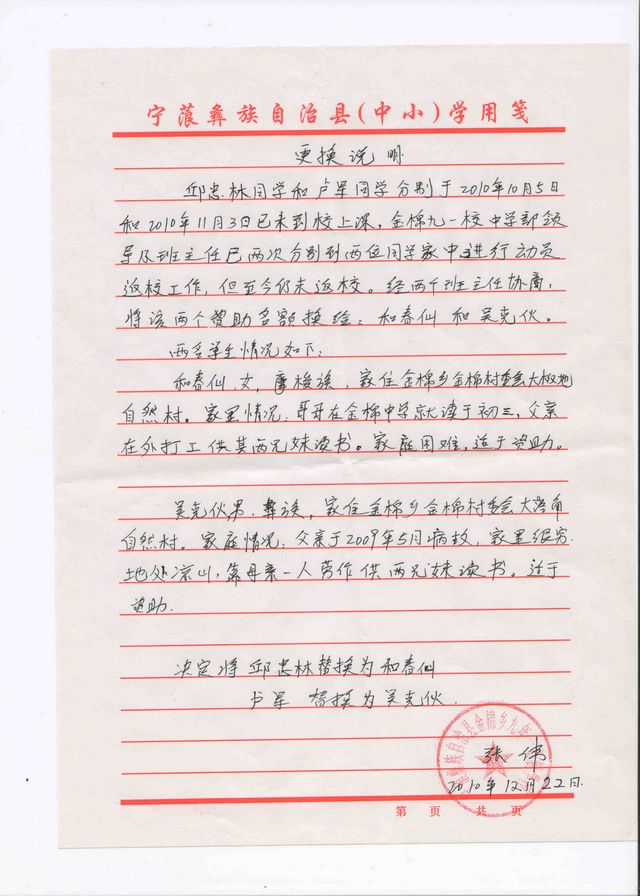 宁蒗彝族自治县(中小)学用笺
更换说明
邱忠林同学和卢军同学分别于2010年10月5日
和2010年11月3日已未到校上课,金棉九一校中学部领
导及班主任已两次分别到两位同学家中进行动员
返校工作,但至今仍未返校。经两个班主任协商,
将该两个赞助名额换给:和春仙和吴克伙。
两名学生情况如下:
和春仙,女,摩梭族,家住金棉乡金棉村委会大板地
自然村。家里情况:哥哥在金棉中学就读于初三,父亲
在外打工供其两兄妹读书。家庭困难,适于资助。
吴克伙,男,彝族,家住金棉乡金棉村委会大湾角
自然村。家庭情况:父亲于2009年5月病故,家里很穷.
地处凉山,靠母亲一人劳作供两兄妹读书。适于
资助.
决定将邱忠林替换为和春仙
卢军 替换为吴克伙.
张伟
2010年12月22日.
彝族自治县金棉乡九年
第 页 共 页